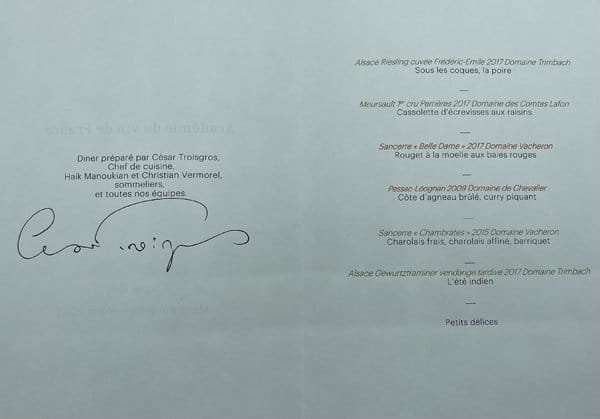 Académie du vin de France
Diner préparé par César Troisgros,
Chef de cuisine,
Haik Manoukian et Christian Vermorel,
sommeliers,
et toutes nos équipes.
Alsace Riesling cuvée Frédéric-Emile 2017 Domaine Trimbach
Sous les coques, la poire
—
Meursault 1er cru Perrières 2017 Domaine des Comtes Lafon
Cassolette d'écrevisses aux raisins
—
Sancerre « Belle Dame » 2017 Domaine Vacheron
Rouget à la moelle aux baies rouges
—
Pessac-Léognan 2009 Domaine de Chevalier
Côte d'agneau brûlé, curry piquant
—
Sancerre « Chambrates » 2015 Domaine Vacheron
Charolais frais, charolais affiné, barriquet
—
Alsace Gewurtztraminer vendange tardive 2017 Domaine Trimbach
L'été indien
—
Petits délices